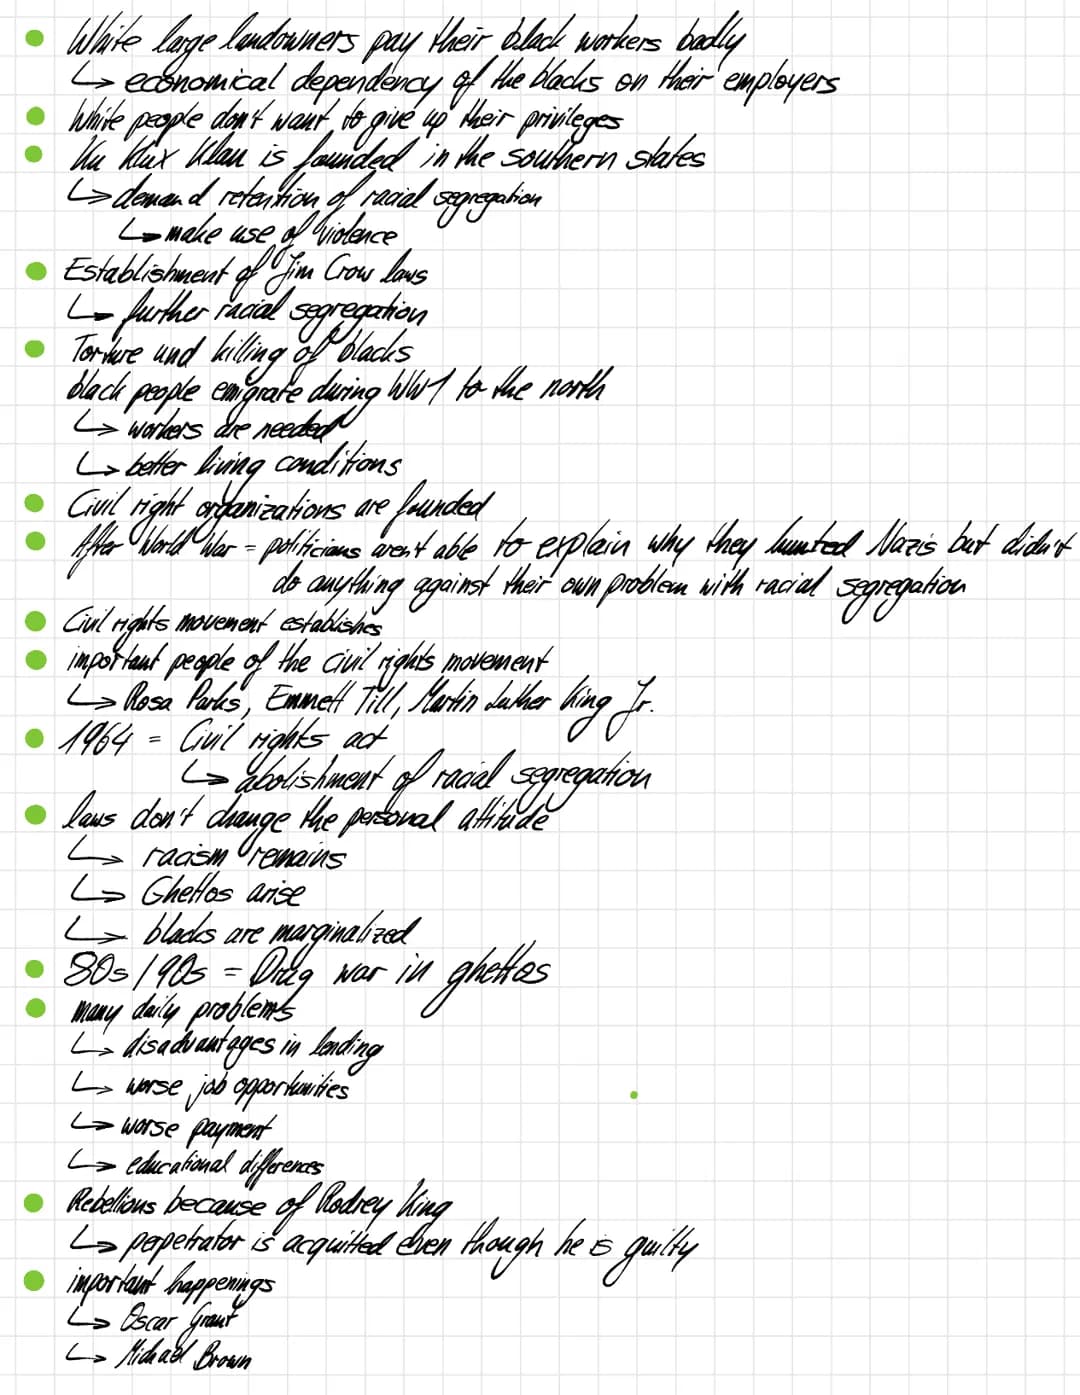 • White large landowners pay their black workers badly
↳ economical dependency of the blacks on their employers
• White people don't want to give up their privileges
• Ku Klux Klan is founded in the southern states
↳ demand retention of racial segregation
↳ make use of violence
• Establishment of Jim Crow laws
↳ further racial segregation
• Torture und killing of blacks
black people emigrate during WW1 to the north
↳ workers are needed
↳ better living conditions
• Civil right organizations are founded
• After World War = politicians aren't able to explain why they hunted Nazis but didn't
do anything against their own problem with racial segregation
• Civil rights movement establishes
• important people of the civil rights movement
↳ Rosa Parks, Emmett Till, Martin Luther King Jr.
• 1964 = Civil rights act
↳ abolishment of racial segregation
• laws don't change the personal attitude
↳ racism remains
↳ Ghettos arise
↳ blacks are marginalized
• 80s/90s = Drug war in ghettos
• many daily problems
↳ disadvantages in lending
↳ worse job opportunities
↳ worse payment
↳ educational differences
• Rebellions because of Rodrey King
↳ perpetrator is acquitted even though he is guilty
• important happenings
↳ Oscar Grant
↳ Michael Brown